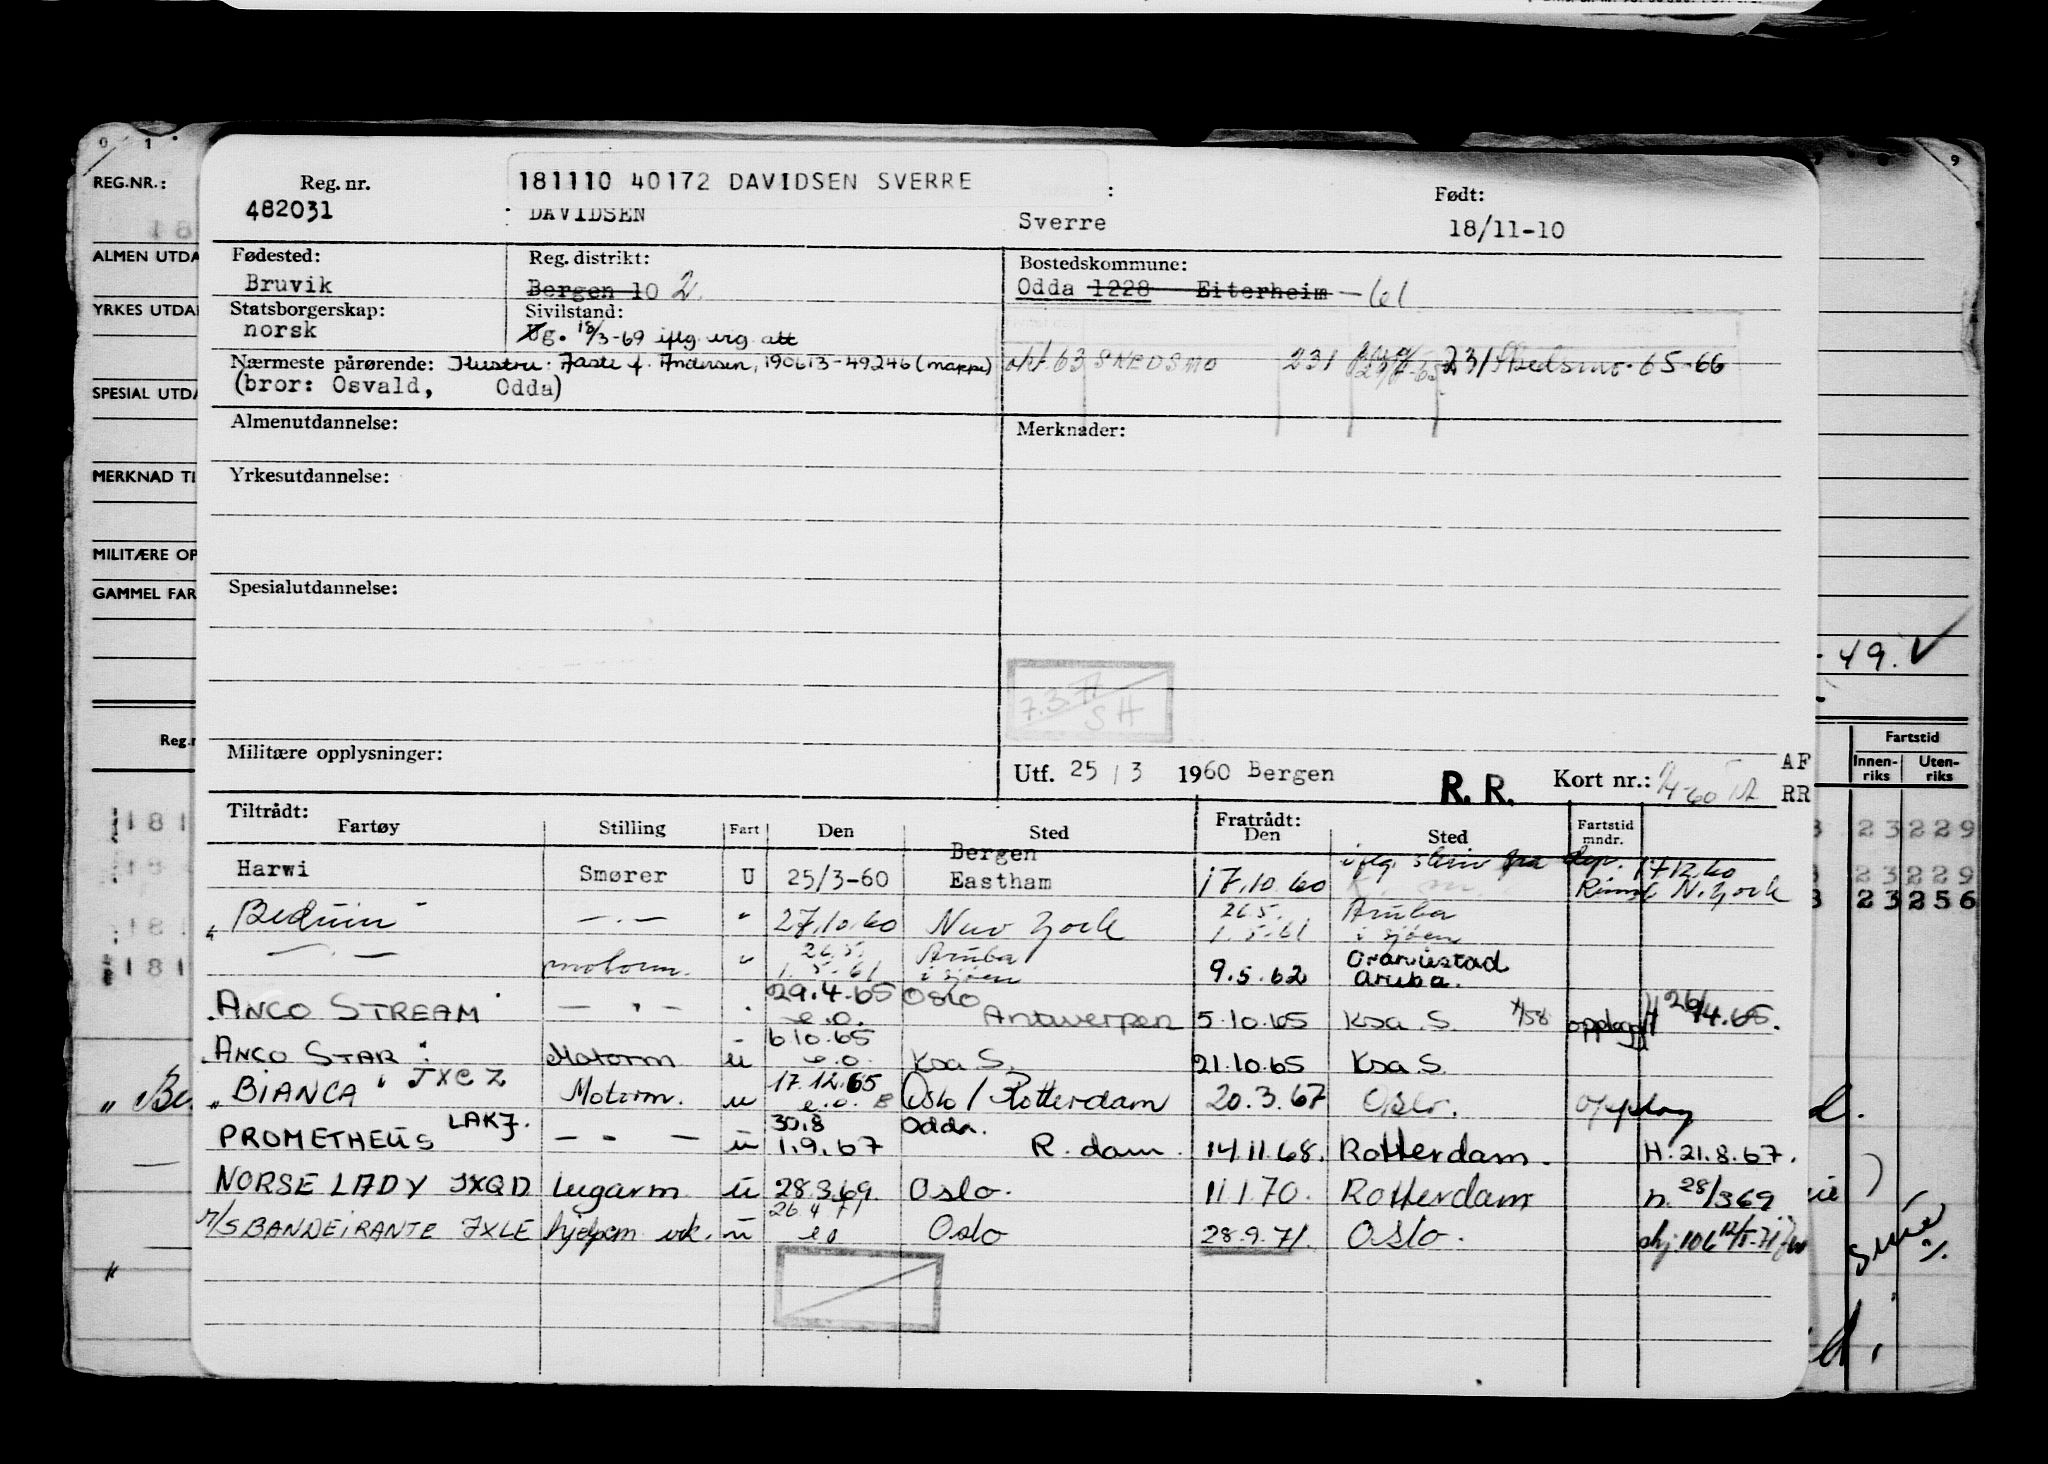 REG.NR.:
ALMEN UTDA
YRKES UTDA
SPESIAL UTDA
MERKNAD TI
MILITÆRE OP
GAMMEL FAR
Reg.nr. 181110 40172 DAVIDSEN SVERRE : Født:
482031 DAVIDSEN Sverre 18/11-10
Fødested: Reg. distrikt: Bostedskommune:
Bruvik Bergen 10 2. Odda 1228 Eiterheim - 61
Statsborgerskap: Sivilstand:
norsk Ug. 18/3-69 iflg. erg. att
Nærmeste pårørende: Hustru: Aasle f. Andersen, 190613-49246 (mappe) 63 SKEDSMO 231 231 Skedsmo. 65-66
(bror: Osvald, Odda)
Almenutdannelse: Merknader:
Yrkesutdannelse:
Spesialutdannelse:
7.3.
SH
- 49. ✓
Militære opplysninger: Utf. 25 / 3 1960 Bergen R. R. Kort nr.: AF
RR
Fartstid
Innen-riks Uten-riks
Tiltrådt: Fratrådt:
Fartøy Stilling Fart Den Sted Den Sted Fartstid mndr.
Harwi Smører U 25/3-60 Bergen Eastham 17.10.60 iflg. skriv fra dep. 17.12.60 N. York
" Beduin " — . — " 27.10.60 New York 26.5. 1.5.61 Aruba i sjøen
— . — motorm. " 26.5. 1.5.61 Aruba i sjøen 9.5.62 Oranjestad Aruba.
ANCO STREAM — " — 29.4.65 e.o. Oslo Antwerpen 5.10.65 Ksa. S. opplagt 26/4.65.
ANCO STAR Motorm u 6.10.65 e.o. Ksa S. 21.10.65 Ksa S.
" BIANCA " JXCZ Motorm. u 17.12.65 e.o. Oslo / Rotterdam 20.3.67 Oslo. opplag
PROMETHEUS LAKJ. — " — u 30.8 1.9.67 Odda. R. dam. 14.11.68. Rotterdam. H. 21.8.67.
NORSE LADY JXQD Lugarm u 28.3.69. Oslo. 11.1.70. Rotterdam h. 28/3 69
M/S BANDEIRANTE JXLE hjelpem u 26.4.71 e o Oslo 28.9.71. Oslo.
23 229
23 229
23 256